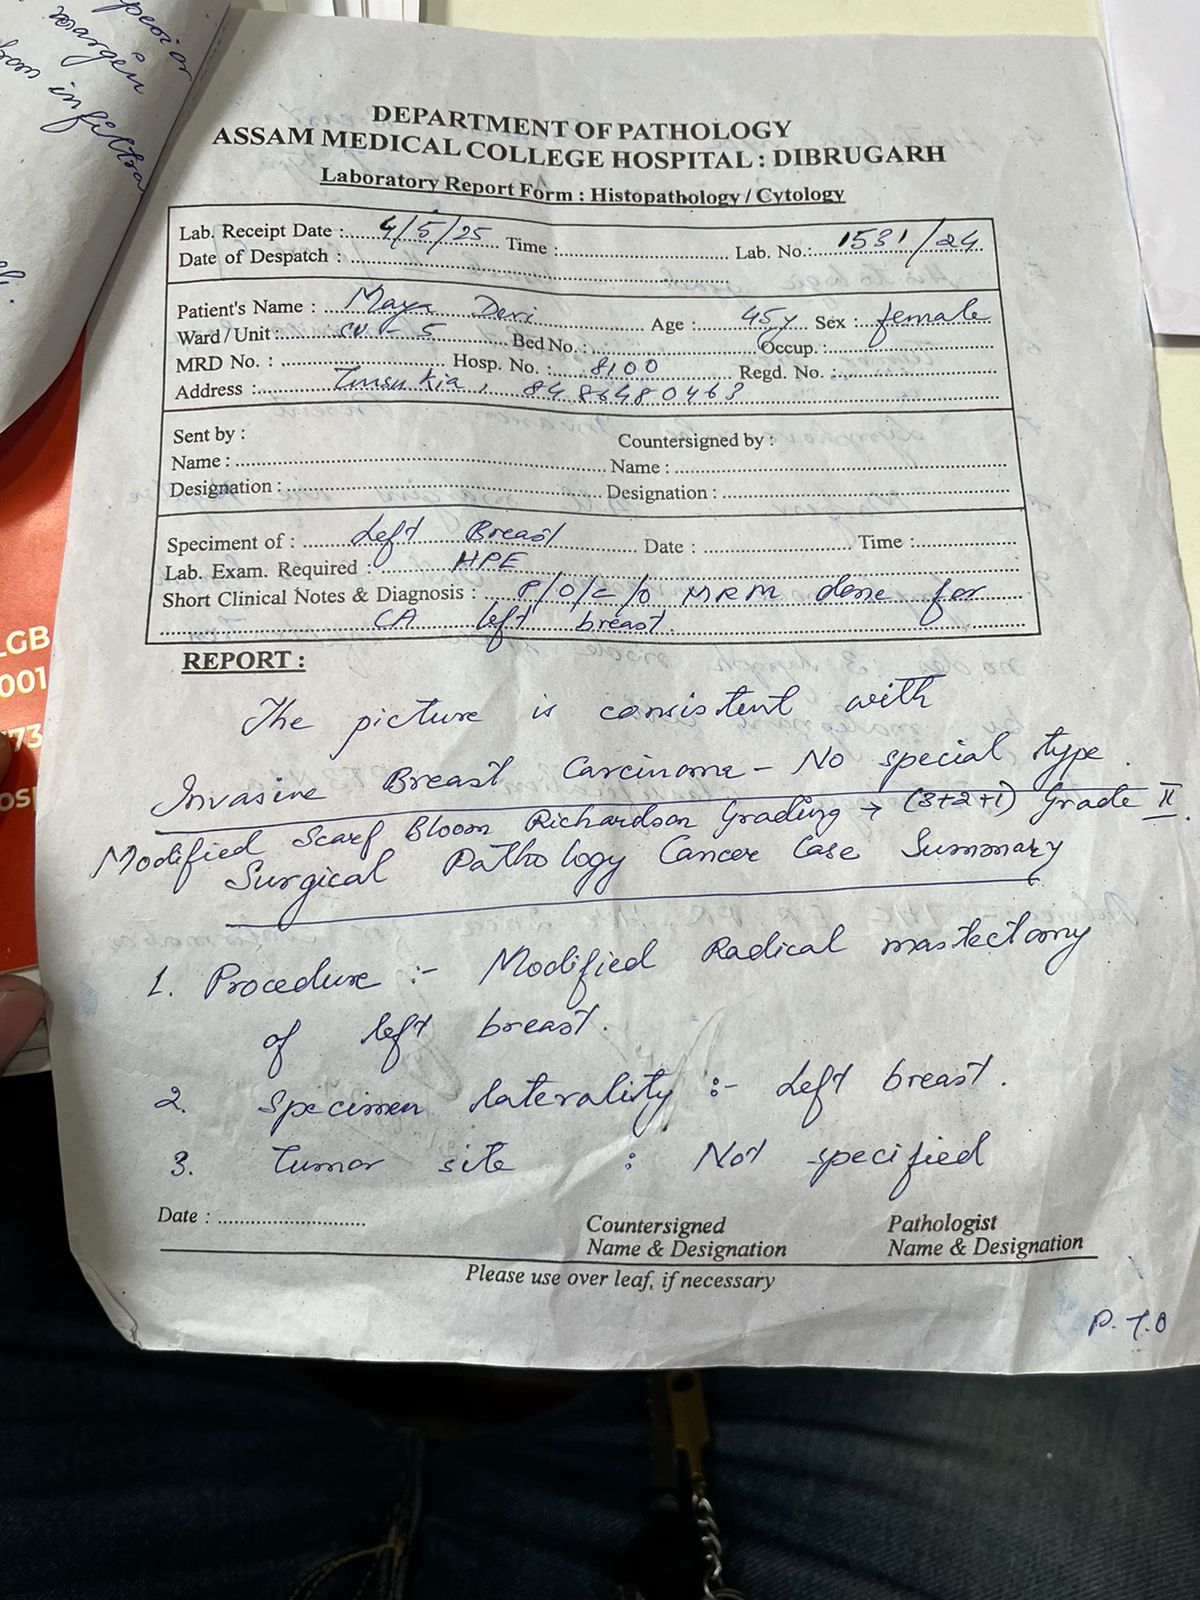 perior
margin
from infiltra
DEPARTMENT OF PATHOLOGY
ASSAM MEDICAL COLLEGE HOSPITAL : DIBRUGARH
Laboratory Report Form : Histopathology / Cytology
Lab. Receipt Date : 4/5/25 Time : Lab. No.: 1531/24
Date of Despatch :
Patient's Name : Maya Devi Age : 45y Sex : female
Ward / Unit : SU - 5 Bed No. : Occup. :
MRD No. : Hosp. No. : 8100 Regd. No. :
Address : Tinsukia, 8486480463
Sent by : Countersigned by :
Name : Name :
Designation : Designation :
Speciment of : Left Breast Date : Time :
Lab. Exam. Required : HPE
Short Clinical Notes & Diagnosis : P/O/C/O MRM done for
CA left breast.
REPORT :
The picture is consistent with
Invasive Breast Carcinoma - No special type.
Modified Scarf Bloom Richardson Grading → (3+2+1) Grade II.
Surgical Pathology Cancer Case Summary
1. Procedure :- Modified Radical mastectomy
of left breast.
2. Specimen laterality :- Left breast.
3. Tumor site : Not specified
Date :
Countersigned Pathologist
Name & Designation Name & Designation
Please use over leaf, if necessary
P.T.O
LGB
001
73
OSP